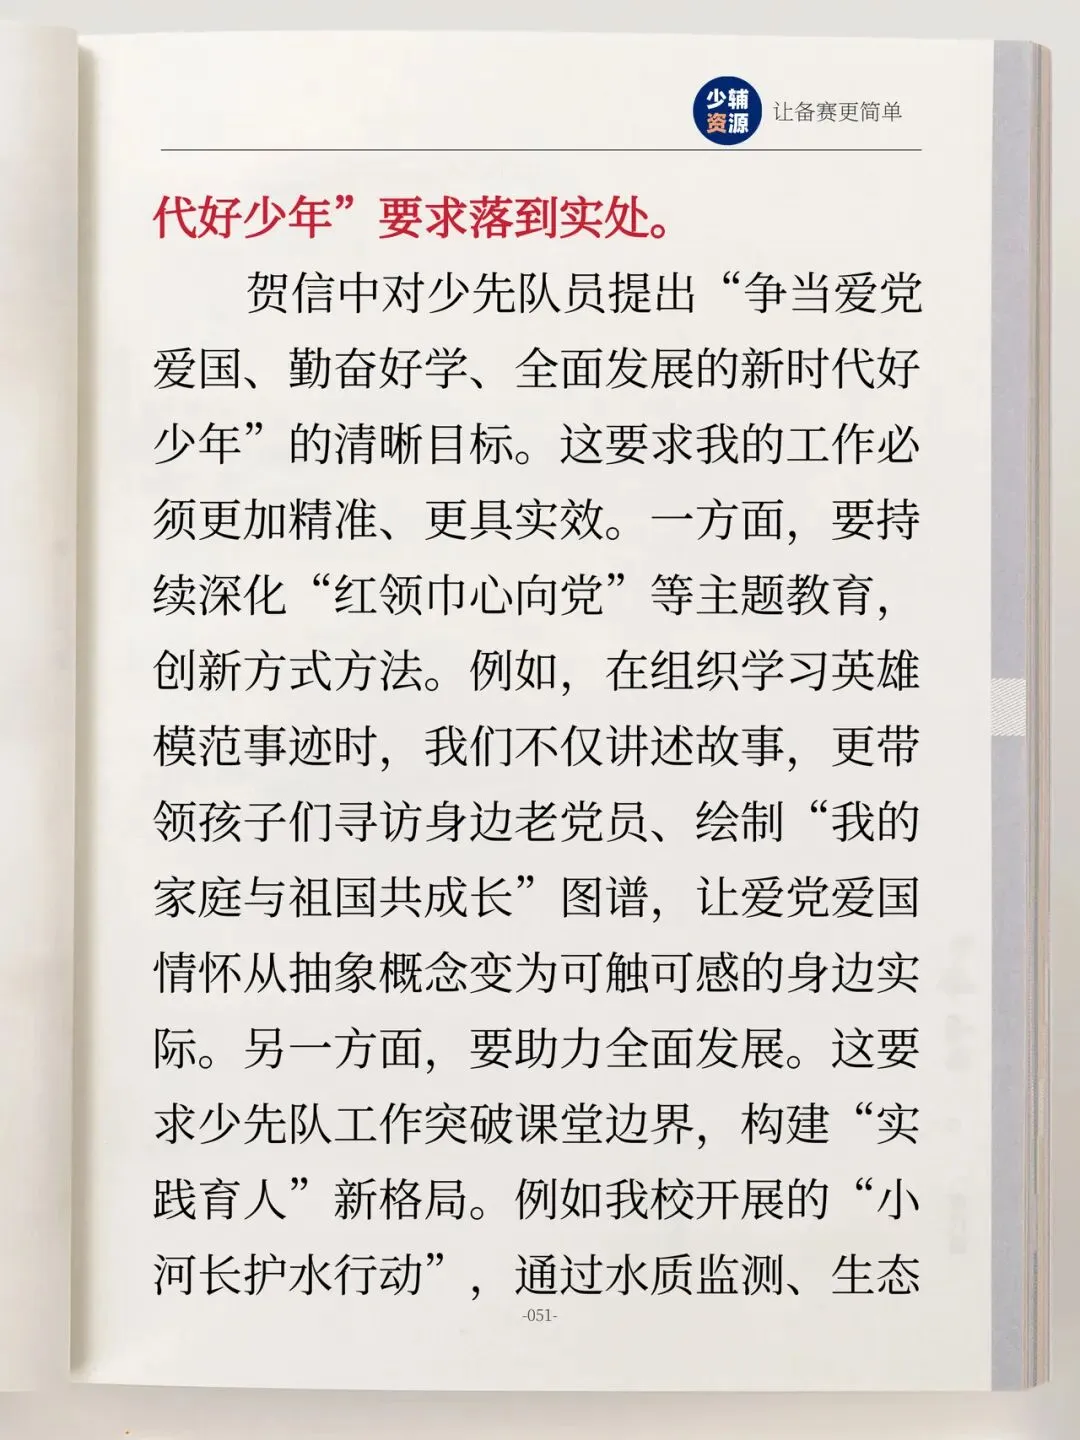 少辅
资源
让备赛更简单
代好少年”要求落到实处。
贺信中对少先队员提出“争当爱党
爱国、勤奋好学、全面发展的新时代好
少年”的清晰目标。这要求我的工作必
须更加精准、更具实效。一方面，要持
续深化“红领巾心向党”等主题教育，
创新方式方法。例如，在组织学习英雄
模范事迹时，我们不仅讲述故事，更带
领孩子们寻访身边老党员、绘制“我的
家庭与祖国共成长”图谱，让爱党爱国
情怀从抽象概念变为可触可感的身边实
际。另一方面，要助力全面发展。这要
求少先队工作突破课堂边界，构建“实
践育人”新格局。例如我校开展的“小
河长护水行动”，通过水质监测、生态
-051-